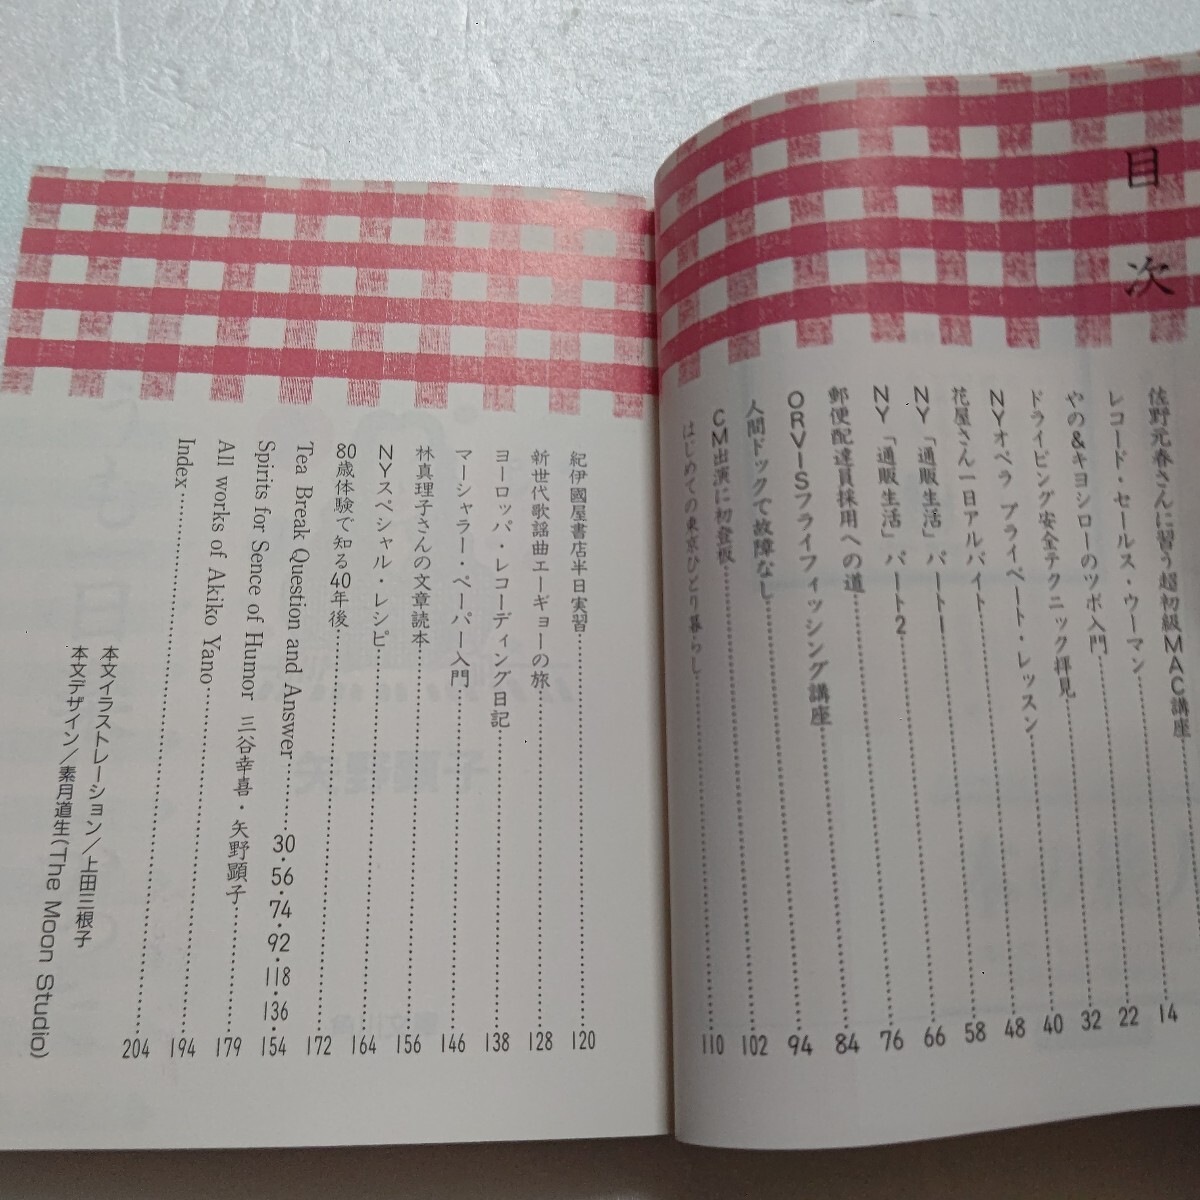 目次
佐野元春さんに習う超初級MAC講座 14
レコード・セールス・ウーマン 22
やの&キヨシローのツボ入門 32
ドライビング安全テクニック拝見 40
NYオペラ プライベート・レッスン 48
花屋さん一日アルバイト 58
NY「通販生活」パート1 66
NY「通販生活」パート2 76
郵便配達員採用への道 84
ORVISフライフィッシング講座 94
人間ドックで故障なし 102
CM出演に初登板 110
はじめての東京ひとり暮らし
紀伊國屋書店半日実習 120
新世代歌謡曲エーギョーの旅 128
ヨーロッパ・レコーディング日記 138
マーシャラー・ペーパー入門 146
林真理子さんの文章読本 156
NYスペシャル・レシピ 164
80歳体験で知る40年後 172
Tea Break Question and Answer 30・56・74・92・118・136・154
Spirits for Sence of Humor 三谷幸喜・矢野顕子 179
All works of Akiko Yano 194
Index 204
本文イラストレーション/上田三根子
本文デザイン/素月道生(The Moon Studio)